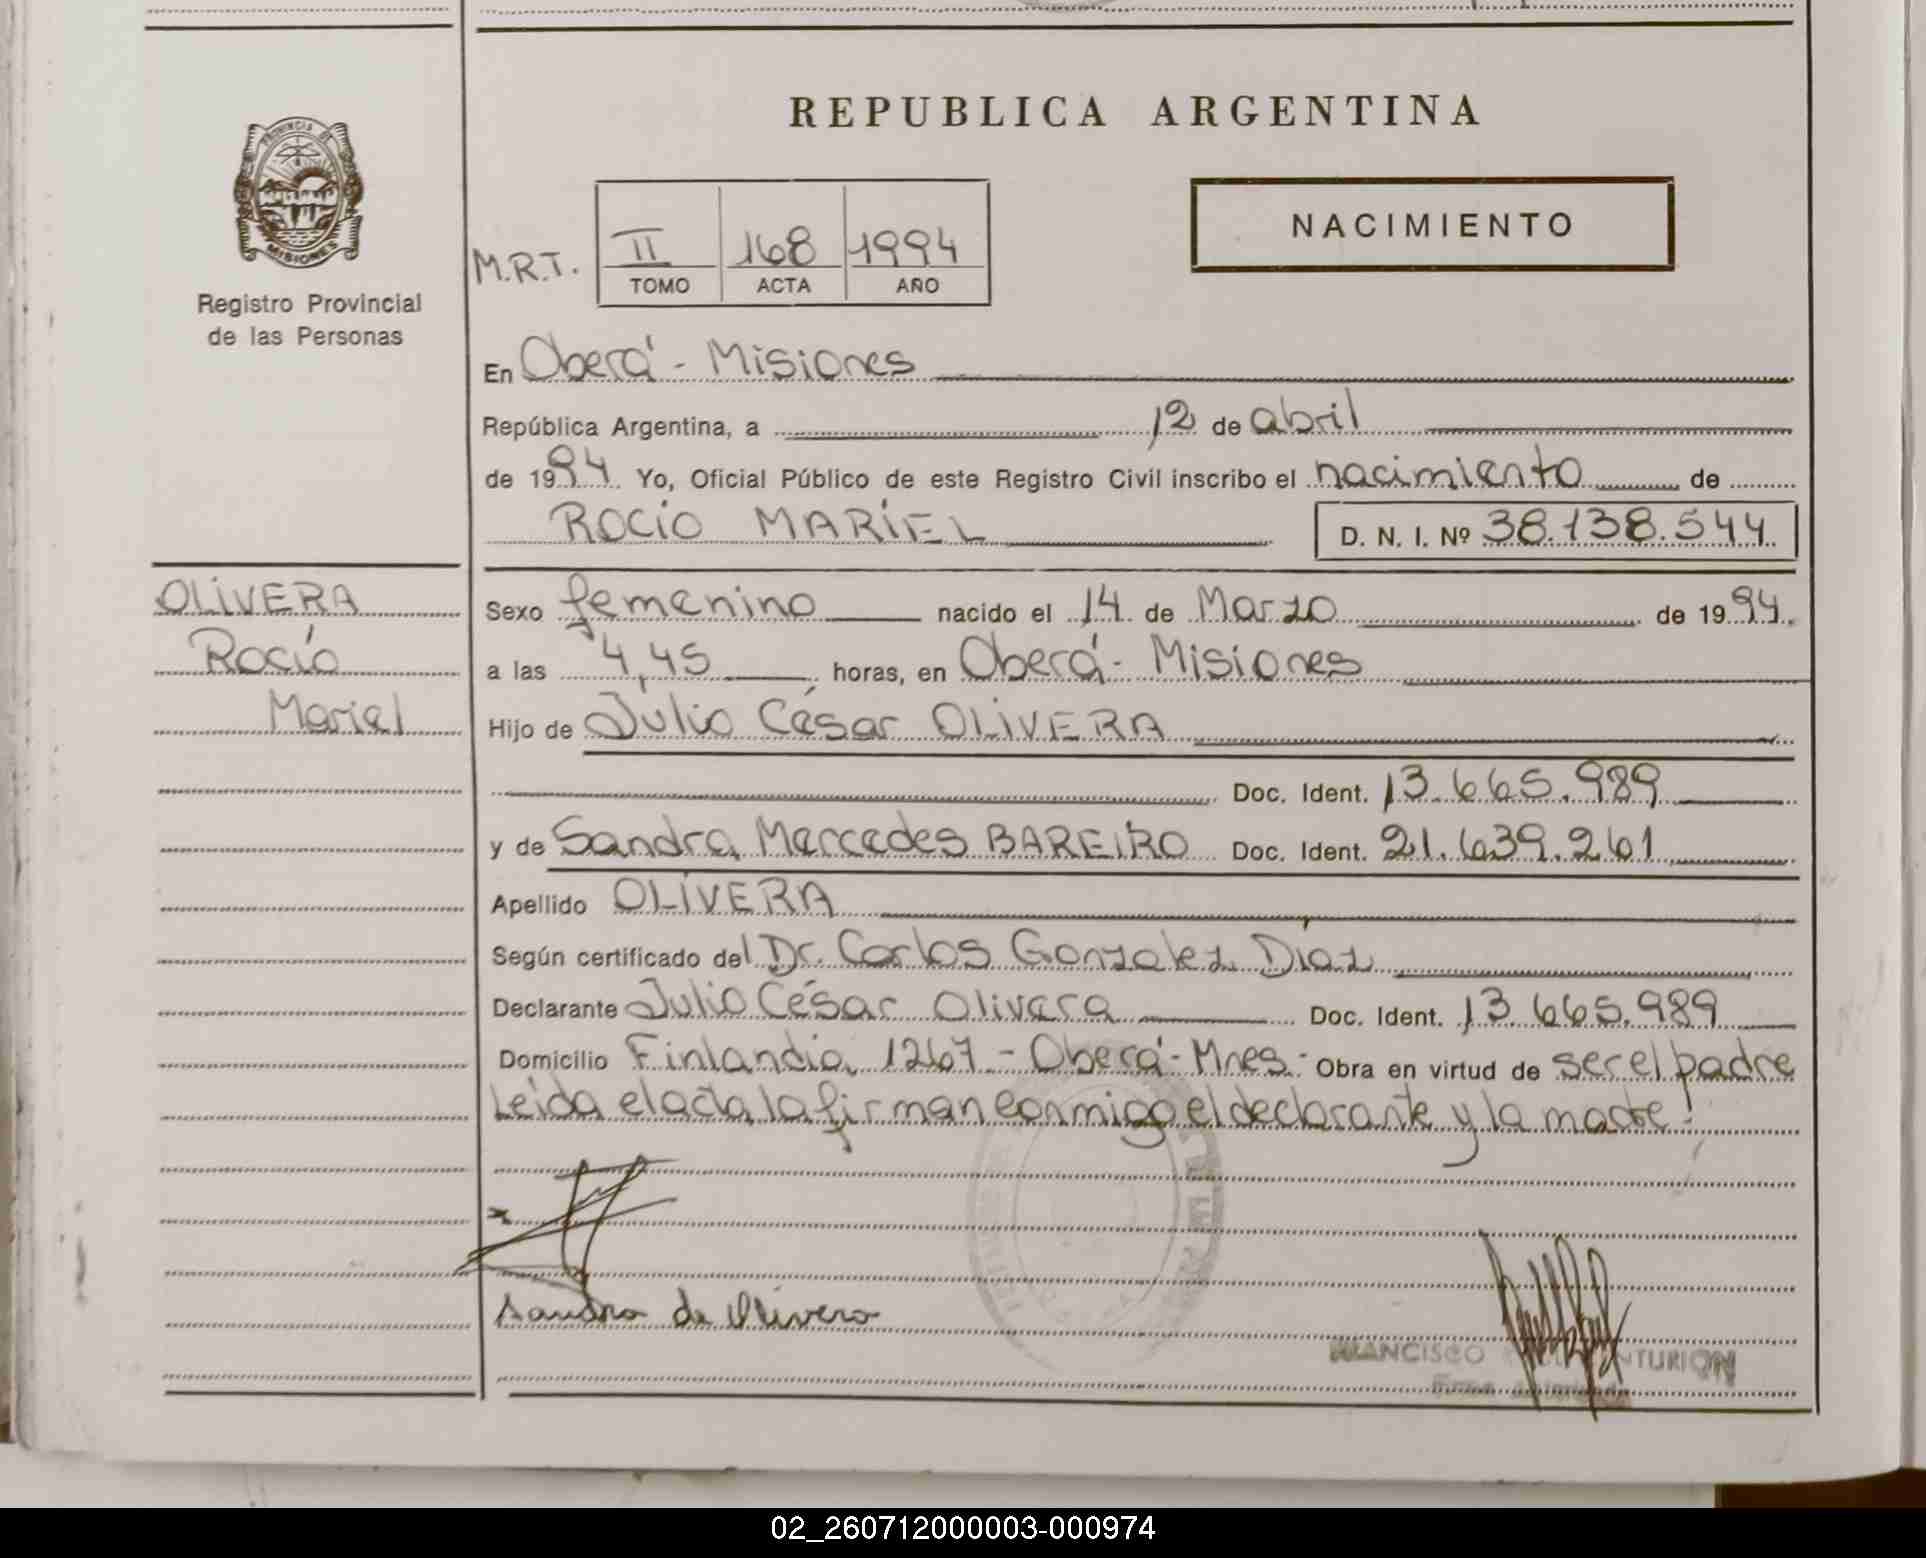 REPUBLICA ARGENTINA
PROVINCIA DE
MISIONES
Registro Provincial
de las Personas
NACIMIENTO
M.R.T.
II 168 1994
TOMO ACTA AÑO
En Oberá - Misiones
República Argentina, a 12 de abril
de 1994. Yo, Oficial Público de este Registro Civil inscribo el nacimiento de
ROCÍO MARIEL D. N. I. Nº 38.138.544
OLIVERA
Rocío
Mariel
Sexo femenino nacido el 14 de Marzo de 1994.
a las 4,45 horas, en Oberá - Misiones
Hijo de Julio César OLIVERA
Doc. Ident. 13.665.989
y de Sandra Mercedes BAREIRO Doc. Ident. 21.639.261
Apellido OLIVERA
Según certificado del Dr. Carlos Gonzalez Díaz
Declarante Julio César Olivera Doc. Ident. 13.665.989
Domicilio Finlandia 1267 - Oberá - Mnes - Obra en virtud de ser el padre
Leída el acta, la firman conmigo el declarante y la madre!
Sandra de Olivera
FRANCISCO
02_260712000003-000974